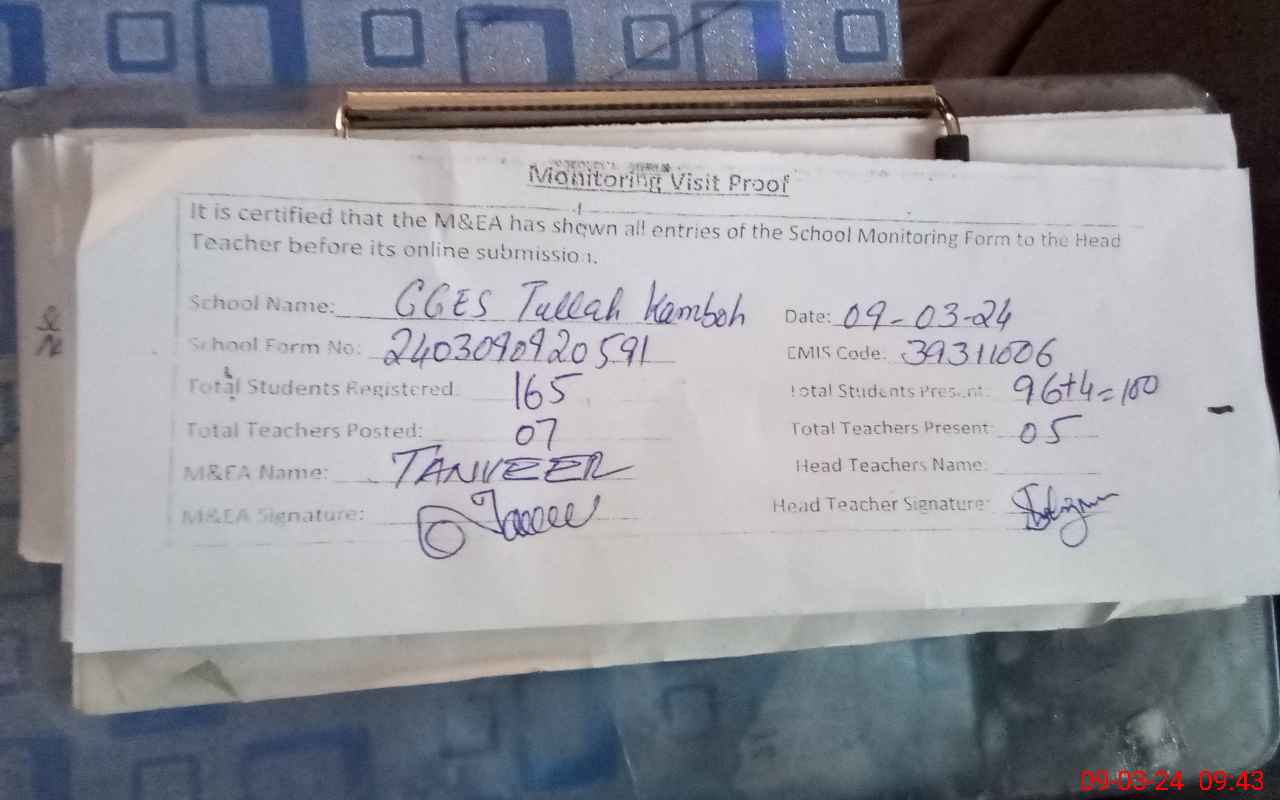 Monitoring Visit Proof
It is certified that the M&EA has shown all entries of the School Monitoring Form to the Head
Teacher before its online submission.
School Name: GGES Tullah Kamboh Date: 09-03-24
School Form No: 2403090920591 EMIS Code: 39311006
Total Students Registered: 165 Total Students Present: 96+4=100
Total Teachers Posted: 07 Total Teachers Present: 05
M&EA Name: TANVEER Head Teachers Name:
M&EA Signature: Head Teacher Signature:
09-03-24 09:43